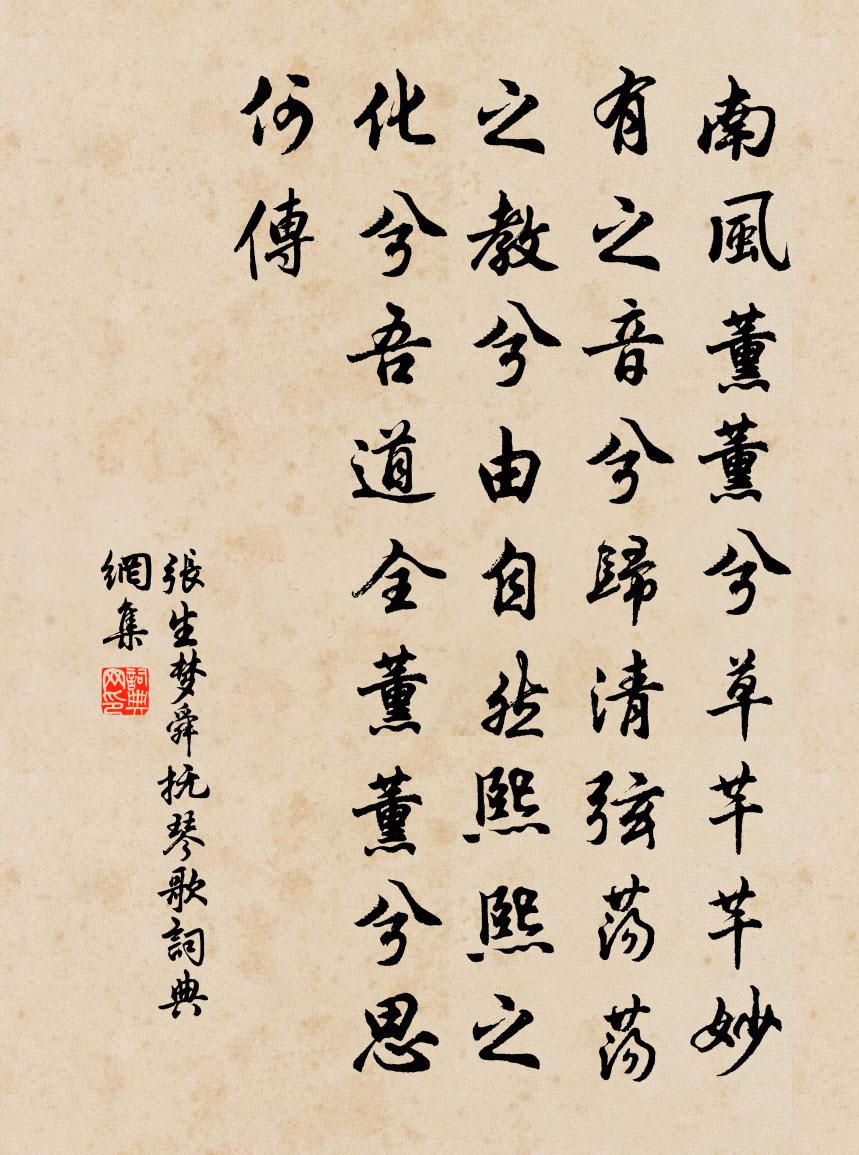 南風薰薰兮草芊芊妙
有之音兮歸清弦蕩蕩
之教兮由自然熙熙之
化兮吾道全薰薰兮思
何傳
張生梦舜抚琴歌詞典
網集
詞典
网印